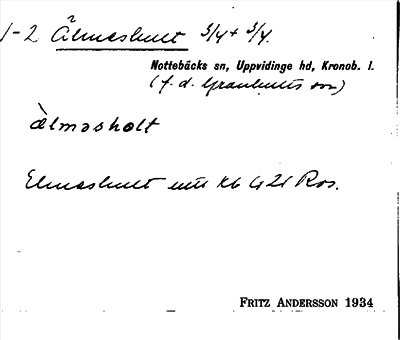 1-2 Älmashult 3/4 + 3/4.
Nottebäcks sn, Uppvidinge hd, Kronob. l.
(f. d. Granhults sn)
älmasholt
Elmashult utt Kb G 21 Ros.
FRITZ ANDERSSON 1934